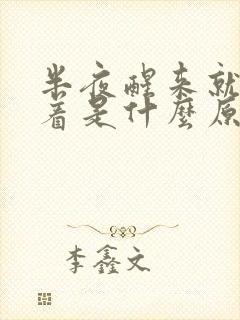 半夜醒来就
着是什麼原
李鑫文